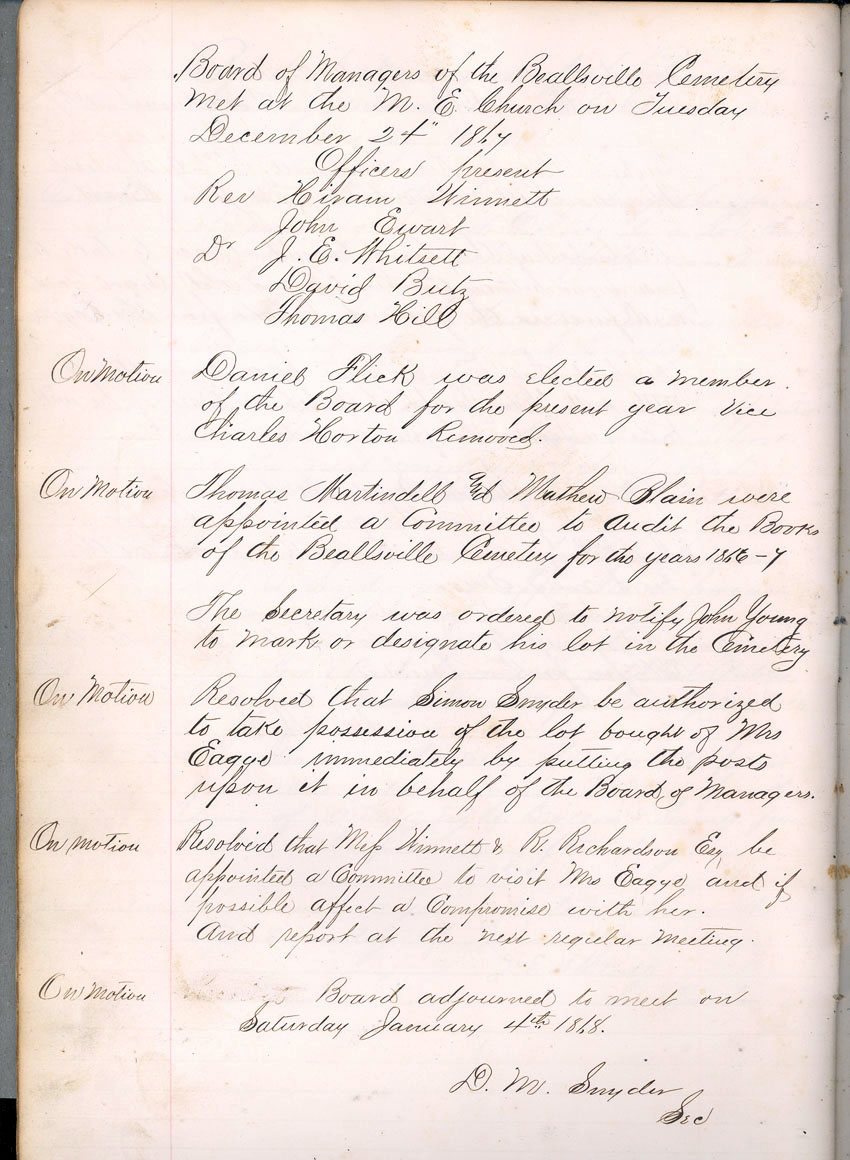 Board of Managers of the Beallsville Cemetery
met at the M. E. Church on Tuesday
December 24" 1867
Officers present
Rev Hiram Winnett
John Ewart
Dr J. E. Whitsett
David Butz
Thomas Hill
On Motion Daniel Flick was elected a member.
of the Board for the present year Vice
Charles Horton Removed.
On Motion Thomas Martindell and Mathew Blain were
appointed a Committee to audit the Books
of the Beallsville Cemetery for the years 1866-7
The Secretary was ordered to notify John Young
to mark or designate his lot in the Cemetery
On Motion Resolved that Simon Snyder be authorized
to take possession of the lot bought of Mrs
Eagye immediately by putting the posts
upon it in behalf of the Board of Managers.
On motion Resolved that Mess Winnett & R. Richardson Esq be
appointed a Committee to visit Mrs Eagye and if
possible affect a Compromise with her.
And report at the next regular Meeting.
On Motion Board adjourned to meet on
Saturday January 4th 1868.
D. M. Snyder
Sec